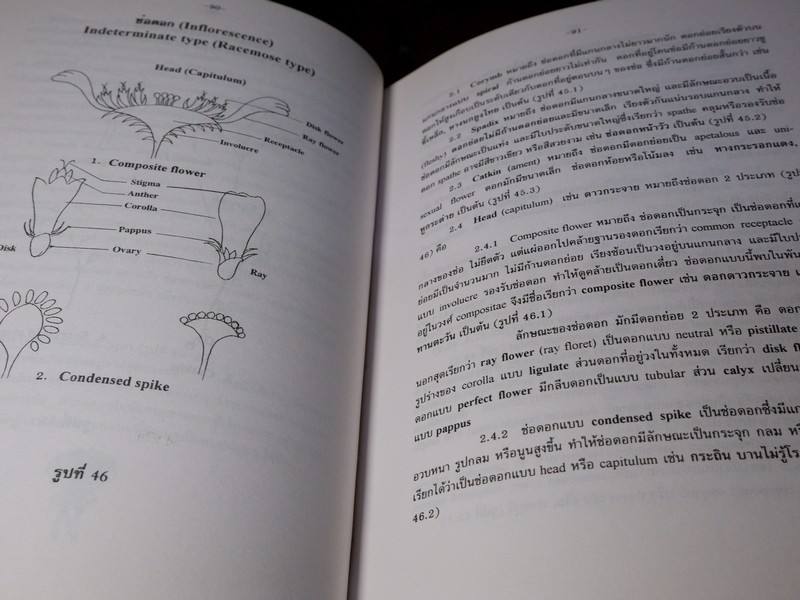 -90-
ช่อดอก (Inflorescence)
Indeterminate type (Racemose type)
Head (Capitulum)
Disk flower
Ray flower
Receptacle
Involucre
1. Composite flower
Stigma
Anther
Corolla
Pappus
Ovary
Disk
Ray
2. Condensed spike
รูปที่ 46
-91-
2.1 Corymb หมายถึง ช่อดอกที่มีแกนกลางไม่ยาวมากนัก ดอกย่อยเรียงตัวบน
แกนกลางแบบ spiral ก้านดอกย่อยยาวไม่เท่ากัน ดอกที่อยู่โคนช่อมีก้านดอกย่อยยาวชู
ดอกให้สูงเกือบเป็นระดับเดียวกับดอกที่อยู่ตอนบนๆ ของช่อ ซึ่งมีก้านดอกย่อยสั้นกว่า เช่น
ขี้เหล็ก, หางนกยูงไทย เป็นต้น (รูปที่ 45.1)
2.2 Spadix หมายถึง ช่อดอกมีแกนกลางขนาดใหญ่ และมีลักษณะอวบเป็นเนื้อ
(fleshy) ดอกย่อยไม่มีก้านดอกย่อยและมีขนาดเล็ก เรียงตัวกันแน่นรอบแกนกลาง ทำให้
ช่อดอกมีลักษณะเป็นแท่ง และมีใบประดับขนาดใหญ่ซึ่งเรียกว่า spathe คลุมหรือรองรับช่อ
ดอก spathe อาจมีสีขาวเขียว หรือสีสวยงาม เช่น ช่อดอกหน้าวัว เป็นต้น (รูปที่ 45.2)
2.3 Catkin (ament) หมายถึง ช่อดอกมีดอกย่อยเป็น apetalous และ uni-
sexual flower ดอกมักมีขนาดเล็ก ช่อดอกห้อยหรือโน้มลง เช่น หางกระรอกแดง,
หูกระต่าย เป็นต้น (รูปที่ 45.3)
2.4 Head (capitulum) เช่น ดาวกระจาย หมายถึงช่อดอก 2 ประเภท (รูป
46) คือ
2.4.1 Composite flower หมายถึง ช่อดอกเป็นกระจุก เป็นช่อดอกที่แ
กลางของช่อ ไม่ยืดตัว แต่แผ่ออกไปคล้ายฐานรองดอกเรียกว่า common receptacle
ย่อยมีเป็นจำนวนมาก ไม่มีก้านดอกย่อย เรียงซ้อนเป็นวงอยู่บนแกนกลาง และมีใบป
แบบ involucre รองรับช่อดอก ทำให้ดูคล้ายเป็นดอกเดี่ยว ช่อดอกแบบนี้พบในพัน
อยู่ในวงศ์ compositae จึงมีชื่อเรียกว่า composite flower เช่น ดอกดาวกระจาย
ทานตะวัน เป็นต้น (รูปที่ 46.1)
ลักษณะของช่อดอก มักมีดอกย่อย 2 ประเภท คือ ดอก
นอกสุดเรียกว่า ray flower (ray floret) เป็นดอกแบบ neutral หรือ pistillate
รูปร่างของ corolla แบบ ligulate ส่วนดอกที่อยู่วงในทั้งหมด เรียกว่า disk fl
ดอกแบบ perfect flower มีกลีบดอกเป็นแบบ tubular ส่วน calyx เปลี่ยน
แบบ pappus
2.4.2 ช่อดอกแบบ condensed spike เป็นช่อดอกซึ่งมีแก
อวบหนา รูปกลม หรือนูนสูงขึ้น ทำให้ช่อดอกมีลักษณะเป็นกระจุก กลม หรื
เรียกได้ว่าเป็นช่อดอกแบบ head หรือ capitulum เช่น กระถิน บานไม่รู้โร
46.2)